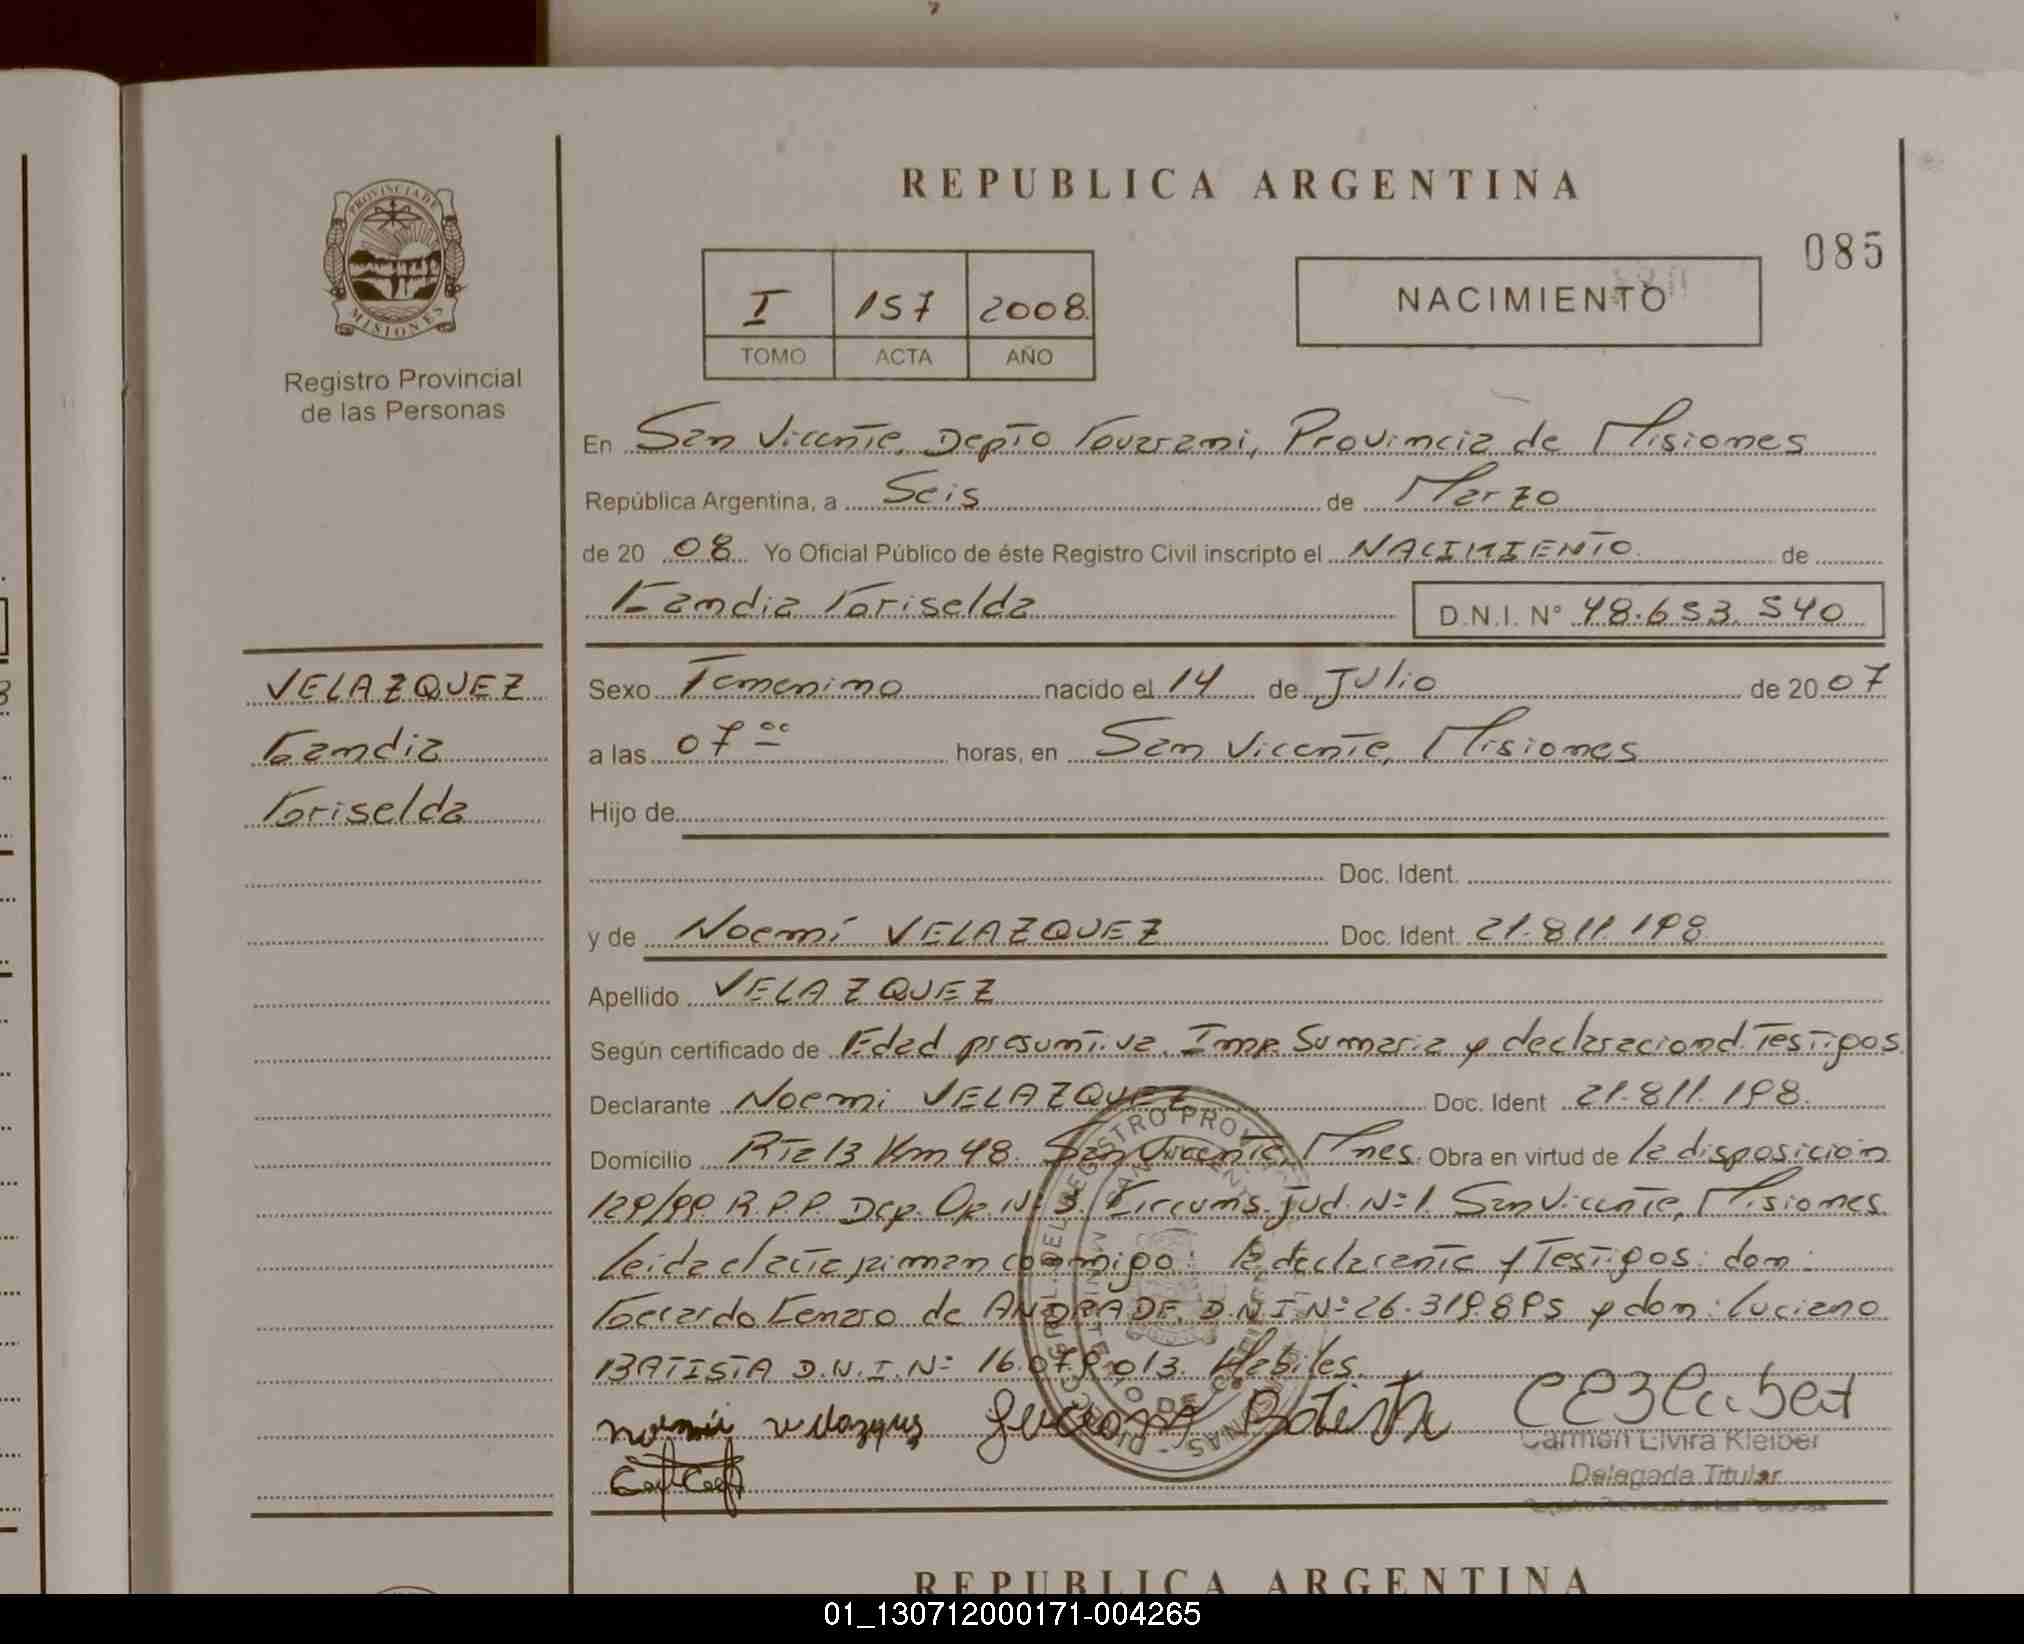 REPUBLICA ARGENTINA
085
PROVINCIA DE
MISIONES
Registro Provincial
de las Personas
I 157 2008
TOMO ACTA AÑO
NACIMIENTO
En San Vicente, Depto Guarani, Provincia de Misiones
República Argentina, a Seis de Marzo
de 20 08 Yo Oficial Público de éste Registro Civil inscripto el NACIMIENTO de
Griselda
D.N.I. Nº 48.653.540
VELAZQUEZ
Griselda
Sexo Femenino nacido el 14 de Julio de 20 07
a las 07 oo horas, en San Vicente, Misiones
Hijo de
Doc. Ident.
y de Noemí VELAZQUEZ Doc. Ident. 21.811.198
Apellido VELAZQUEZ
Según certificado de Edad presuntiva, Imp. Sumaria y declaracion d. Testigos
Declarante Noemi VELAZQUEZ Doc. Ident 21.811.198.
Domicilio Rta 13 Km 48. San Vicente, Mnes. Obra en virtud de la disposición
129/99. R.P.P. Dep. Op. Nº 3. Circuns. Jud. Nº 1. San Vicente, Misiones
Leida el acta firman conmigo: la declarante y Testigos: don:
Genaro de ANDRADE, D.N.I Nº 26.319.895 y don: Luciano
BATISTA D.N.I. Nº 16.079.013. Habiles.
Carmen Elvira Kleiber
Delegada Titular
REPUBLICA ARGENTINA
01_130712000171-004265